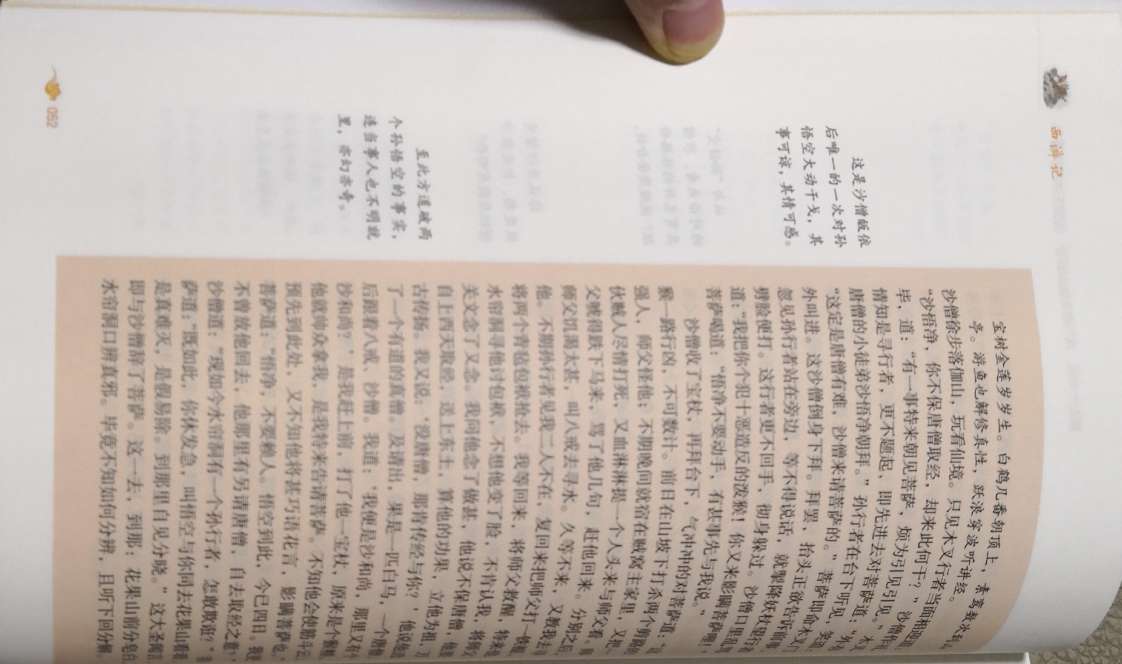 西游记
这是沙僧皈依
后唯一的一次对孙
悟空大动干戈，其
事可谅，其情可感。
至此方道破两
个孙悟空的事实，
连当事人也不明就
里，亦幻亦奇。
宝树金莲岁岁生。白鹤几番朝顶上，素鸾数次
亭。游鱼也解修真性，跃浪穿波听讲经。
沙僧徐步落伽山，玩看仙境。只见木叉行者当面相迎
“沙悟净，你不保唐僧取经，却来此何干？”沙僧作
毕，道：“有一事特来朝见菩萨，烦为引见引见。”木
情知是寻行者，更不题起，即先进去对菩萨道：“外
唐僧的小徒弟沙悟净朝拜。”孙行者在台下听见，笑
“这定是唐僧有难，沙僧来请菩萨的。”菩萨即命木叉
外叫进。这沙僧倒身下拜。拜罢，抬头正欲告诉前
忽见孙行者站在旁边，等不得说话，就掣降妖杖望行
劈脸便打。这行者更不回手，彻身躲过。沙僧口里乱
道：“我把你个犯十恶造反的泼猴！你又来影瞒菩萨哩！
菩萨喝道：“悟净不要动手，有甚事先与我说。”
沙僧收了宝杖，再拜台下，气冲冲的对菩萨道：“
猴一路行凶，不可数计。前日在山坡下打杀两个剪
强人，师父怪他；不期晚间就宿在贼窝主家里，又把
伙贼人尽情打死，又血淋淋提一个人头来与师父看
父唬得跌下马来，骂了他几句，赶他回来。分别之后
师父饥渴太甚，叫八戒去寻水。久等不来，又教我去
他。不期孙行者见我二人不在，复回来把师父打一铁
将两个青毡包袱抢去。我等回来，将师父救醒，特来
水帘洞寻他讨包袱，不想他变了脸，不肯认我，将师
关文念了又念。我问他念了做甚，他说不保唐僧，他
自上西天取经，送上东土，算他的功果，立他为祖，万
古传扬。我又说：‘没唐僧，那肯传经与你？’他说他
了一个有道的真僧。及请出，果是一匹白马，一个唐僧
后跟着八戒、沙僧。我道：‘我便是沙和尚，那里又有
沙和尚？’是我赶上前，打了他一宝杖，原来是个猴精
他就帅众拿我，是我特来告请菩萨。不知他会使筋斗云
预先到此处，又不知他将甚巧语花言，影瞒菩萨也。”
菩萨道：“悟净，不要赖人。悟空到此，今已四日。我
不曾放他回去，他那里有另请唐僧，自去取经之意？”
沙僧道：“现如今水帘洞有一个孙行者，怎敢欺诳？”
萨道：“既如此，你休发急，叫悟空与你同去花果山看看
是真难灭，是假易除。到那里自见分晓。”这大圣闻言
即与沙僧辞了菩萨。这一去，到那：花果山前分皂白
水帘洞口辨真邪。毕竟不知如何分辨，且听下回分解。
062